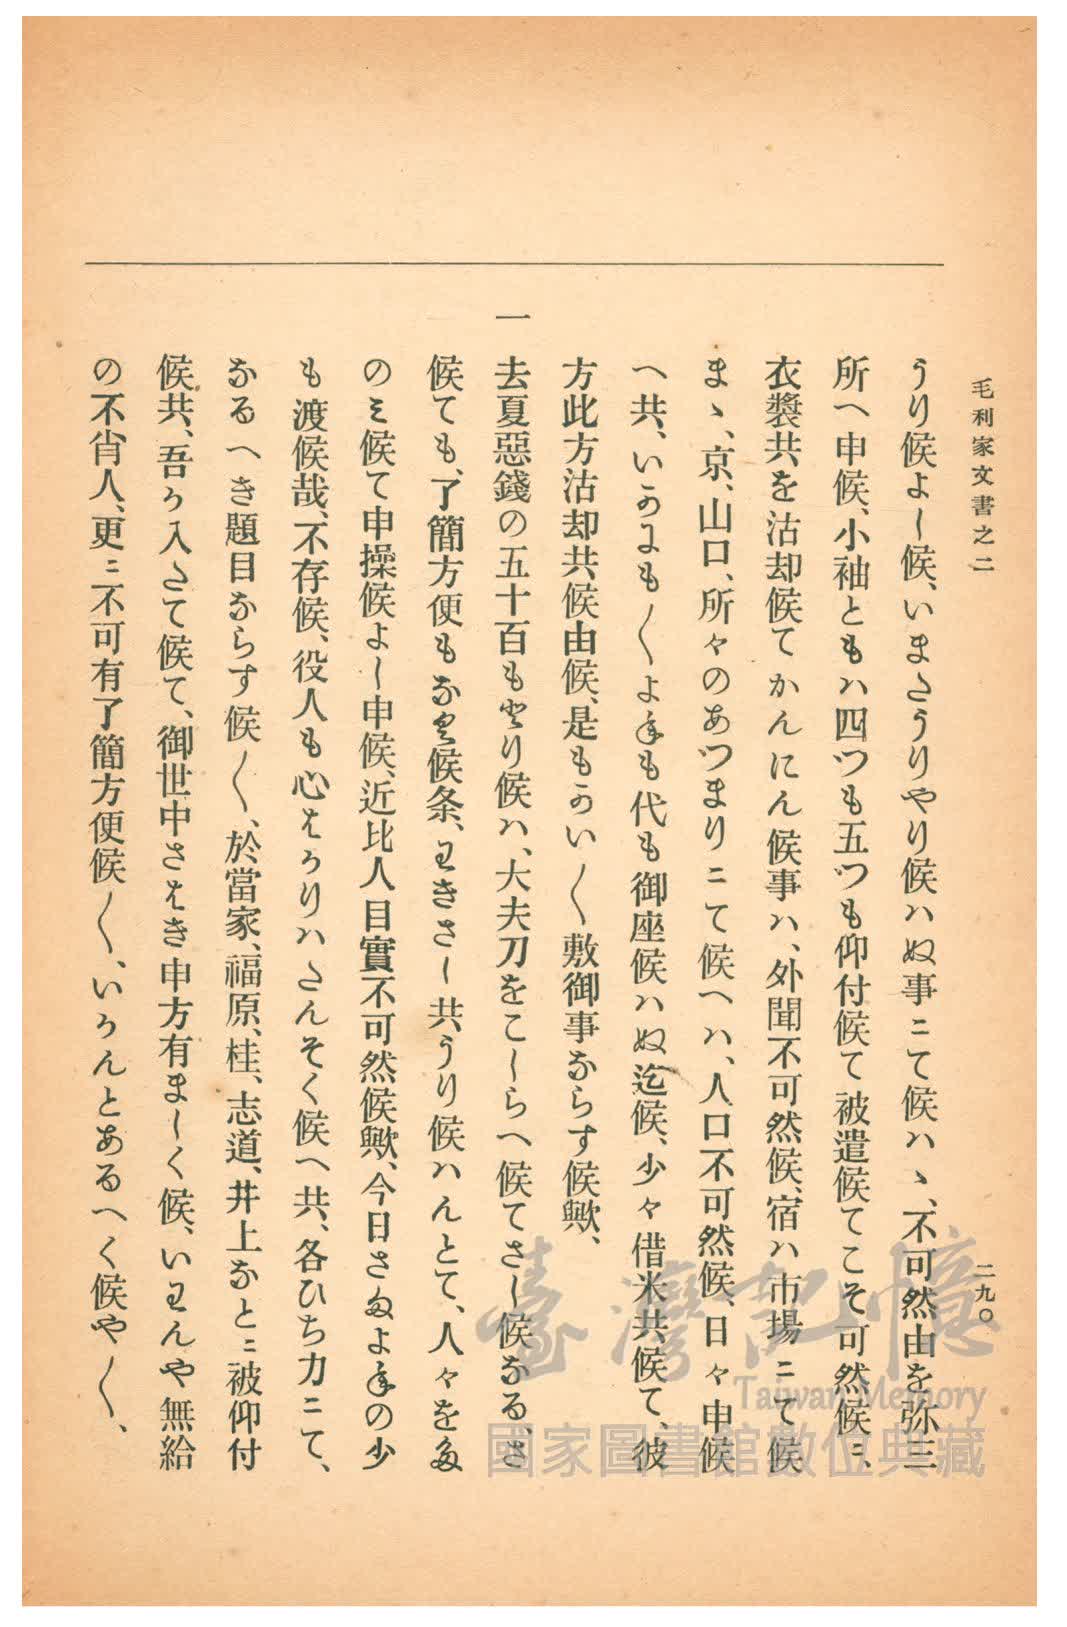 毛利家文書之二
二九〇
うり候よし候、いまたうりやり候ハぬ事ニて候ハヽ、不可然由を弥三
所へ申候、小袖ともハ四ツも五ツも仰付候て被遣候てこそ可然候ニ、
衣裳共を沽却候てかんにん候事ハ、外聞不可然候、宿ハ市場ニて候
まヽ、京、山口、所々のあつまりニて候へハ、人口不可然候、日々申候
へ共、いかにも〱よねも代も御座候ハぬ迄候、少々借米共候て、彼
方此方沽却共候由候、是もかい〱敷御事ならす候歟、
一
去夏惡錢の五十百もとり候ハ、大夫刀をこしらへ候てさし候なる、さ
候ても、了簡方便もなく候条、わきさし共うり候ハんとて、人々をた
のミ候て申操候よし申候、近比人目實不可然候歟、今日さまよねの少
も渡候哉、不存候、役人も心はかりハさんそく候へ共、各ひち力ニて、
なるへき題目ならす候〱、於當家、福原、桂、志道、井上なとニ被仰付
候共、吾か入たて候て、御世中さはき申方有ましく候、いわんや無給
の不肖人、更ニ不可有了簡方便候〱、いかんとあるへく候や〱、
臺灣記憶
Taiwan Memory
國家圖書館數位典藏